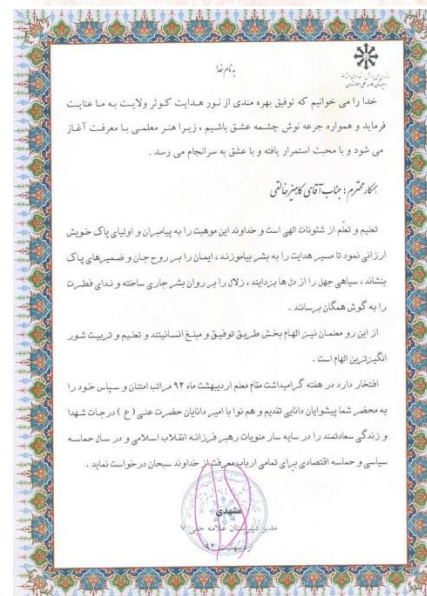 به نام خدا
خدا را می خوانیم که توفیق بهره مندی از نور هدایت کوثر ولایت به ما عنایت
فرماید و همواره جرعه نوش چشمه عشق باشیم ، زیرا هنر معلمی با معرفت آغاز
می شود و با محبت استمرار یافته و با عشق به سرانجام می رسد .
همکار محترم ؛ جناب آقای کامبیز خالقی
تعلیم و تعلّم از شئونات الهی است و خداوند این موهبت را به پیامبران و اولیای پاک خویش
ارزانی نمود تا مسیر هدایت را به بشر بیاموزند ، ایمان را بر روح جان و ضمیرهای پاک
بنشاند ، سیاهی جهل را از دل ها بزدایند ، زلال را بر روان بشر جاری ساخته و ندای فطرت
را به گوش همگان برسانند .
از این رو معلمان نیز الهام بخش طریق توفیق و مبلغ انسانیتند و تعلیم و تربیت شور
انگیزترین الهام است .
افتخار دارد در هفته گرامیداشت مقام معلم اردیبهشت ماه ۹۲ مراتب امتنان و سپاس خود را
به محضر شما پیشوایان دانایی تقدیم و هم نوا با امیر دانایان حضرت علی ( ع ) درجات شهدا
و زندگی سعادتمند را در سایه سار منویات رهبر فرزانه انقلاب اسلامی و در سال حماسه
سیاسی و حماسه اقتصادی برای تمامی ارباب معرفت از خداوند سبحان درخواست نماید .
مشهدی
مدیر دبیرستان علامه حلی ۷